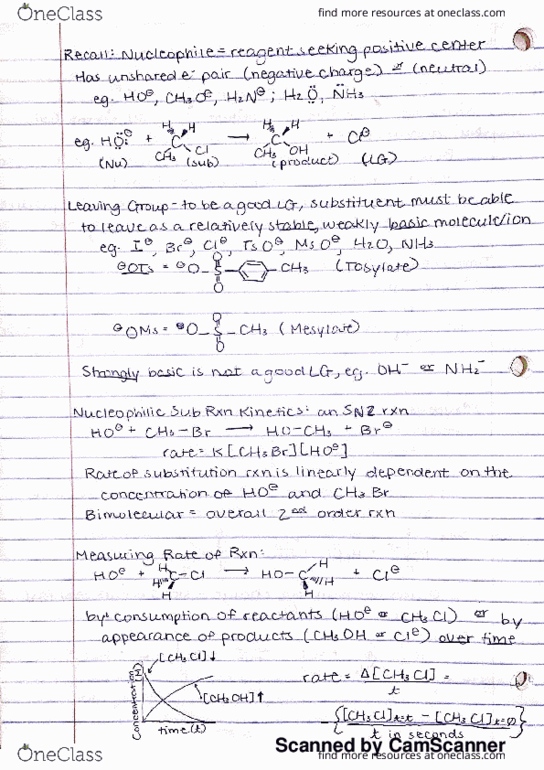 OneClass
find more resources at oneclass.com
Recall: Nucleophile = reagent seeking positive center
Has unshared e⁻ pair (negative charge) or (neutral)
eg. HO⊖, CH₃O⊖, H₂N⊖ ; H₂Ö, N̈H₃
eg. HÖ:⊖ + H H C CH₃ Cl → H H C CH₃ OH + Cl⊖
(Nu) (sub) (product) (LG)
Leaving Group - to be a good LG, substituent must be able
to leave as a relatively stable, weakly basic molecule/ion
eg. I⊖, Br⊖, Cl⊖, TsO⊖, MsO⊖, H₂O, NH₃
⊖OTs = ⊖O-S-CH₃ (Tosylate)
O
O
⊖OMs = ⊖O-S-CH₃ (Mesylate)
O
O
Strongly basic is not a good LG, eg. OH⁻ or NH₂⁻
Nucleophilic Sub Rxn Kinetics: an SN2 rxn
HO⊖ + CH₃-Br → HO-CH₃ + Br⊖
rate = K[CH₃Br][HO⊖]
Rate of substitution rxn is linearly dependent on the
concentration of HO⊖ and CH₃Br
Bimolecular = overall 2nd order rxn
Measuring Rate of Rxn:
HO⊖ + H H C-Cl H → HO-C H H H + Cl⊖
by: consumption of reactants (HO⊖ or CH₃Cl) or by
appearance of products (CH₃OH or Cl⊖) over time
[CH₃Cl]↓
[CH₃OH]↑
Concentration (M)
time (t)
rate = Δ[CH₃Cl] =
t
{[CH₃Cl]t=t - [CH₃Cl]t=0}
t in seconds
Scanned by CamScanner
OneClass
find more resources at oneclass.com